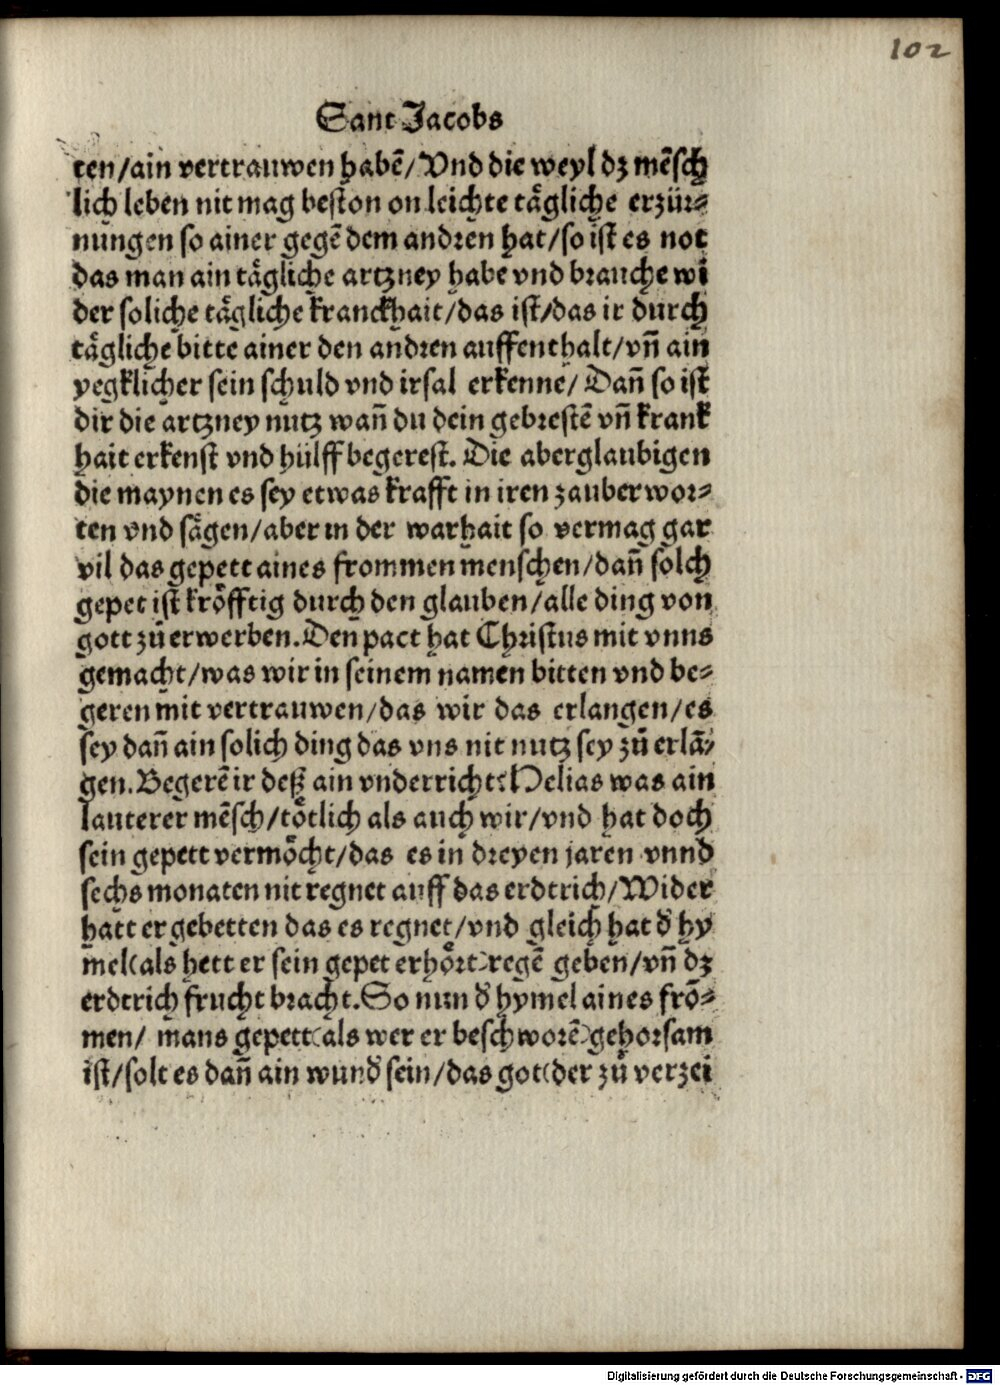 102
Sant Jacobs
ten/ain vertrauwen habē/Vnd die weyl dz mēsch
lich leben nit mag beston on leichte tägliche erzür⸗
nungen so ainer gegē dem andren hat/so ist es not
das man ain tägliche artzney habe vnd brauche wi
der soliche tägliche kranckhait/das ist/das ir durch
tägliche bitte ainer den andren auffenthalt/vñ ain
yegklicher sein schuld vnd irsal erkenne/Dañ so ist
dir die artzney nutz wañ du dein gebrestē vñ krank
hait erkenst vnd hülff begerest. Die aberglaubigen
die maynen es sey etwas krafft in iren zauberwor⸗
ten vnd sägen/aber in der warhait so vermag gar
vil das gepett aines frommen menschen/dañ solch
gepet ist kröfftig durch den glauben/alle ding von
gott zů erwerben. Den pact hat Christus mit vnns
gemacht/was wir in seinem namen bitten vnd be⸗
geren mit vertrauwen/das wir das erlangen/es
sey dañ ain solich ding das vns nit nutz sey zů erlā⸗
gen. Begerē ir deß ain vnderricht? Helias was ain
lauterer mēsch/tötlich als auch wir/vnd hat doch
sein gepett vermöcht/das es in dreyen jaren vnnd
sechs monaten nit regnet auff das erdtrich/Wider
hatt er gebetten das es regnet/vnd gleich hat d̕ hy
mel(als hett er sein gepet erhört)regē geben/vñ dz
erdtrich frucht bracht. So nun d̕ hymel aines frō⸗
men/ mans gepett(als wer er beschworē)gehorsam
ist/solt es dañ ain wund̕ sein/das got(der zů verzei
Digitalisierung gefördert durch die Deutsche Forschungsgemeinschaft - DFG